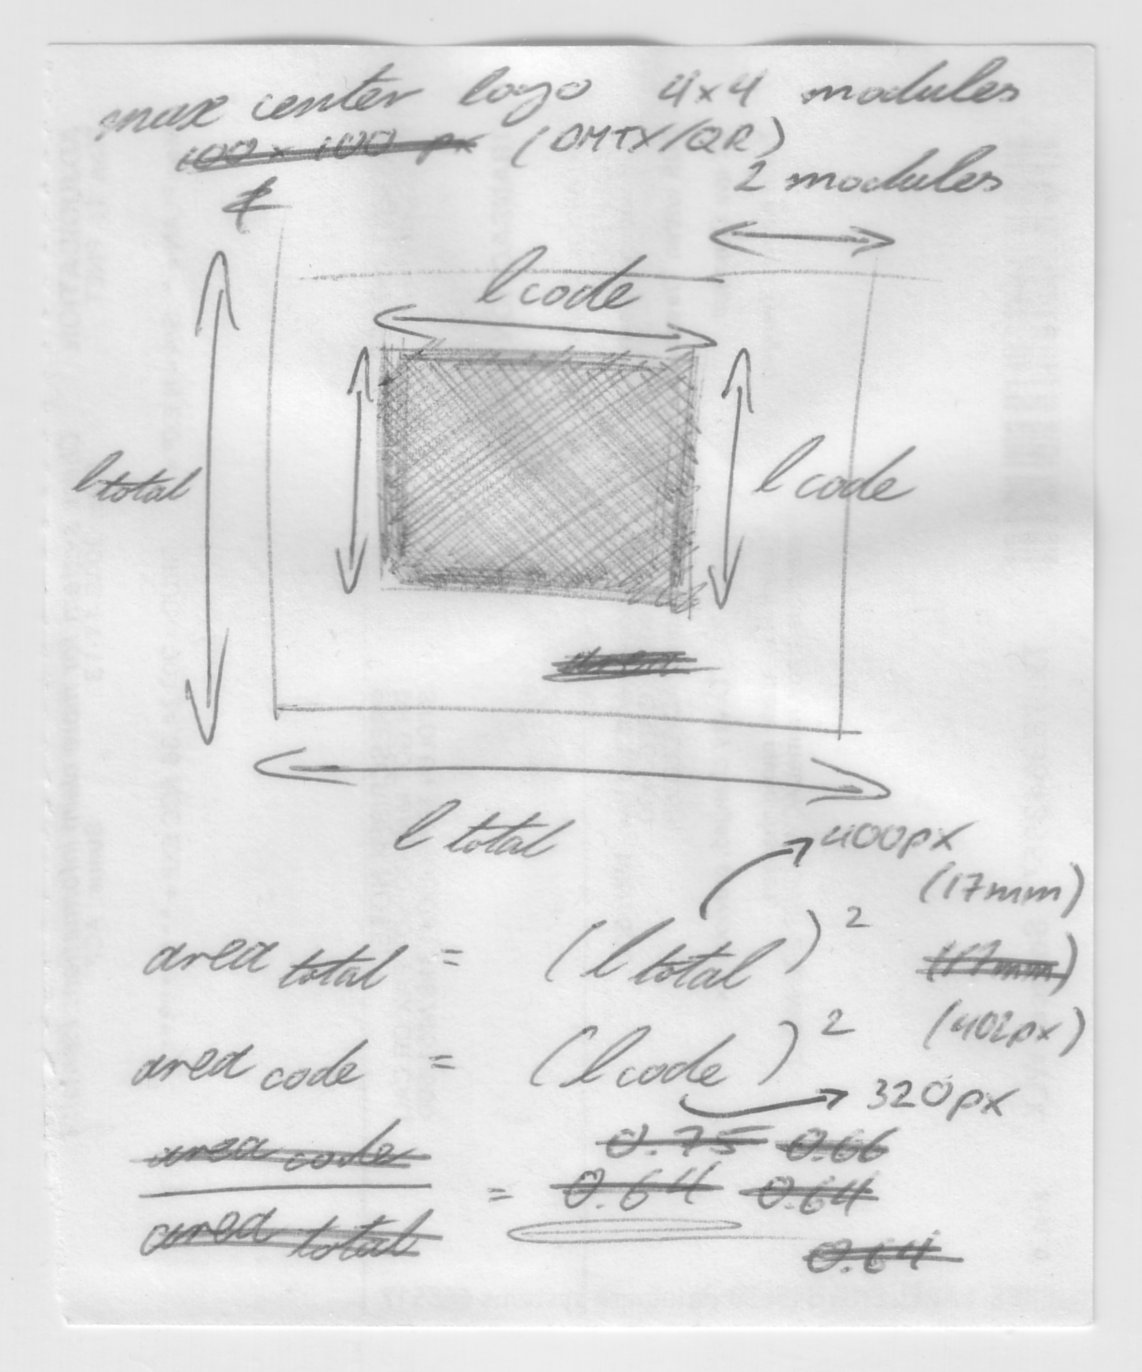 max center logo 4x4 modules
100 x 100 px (DMTX/QR)
2 modules
l code
l total
l code
area
l total
400px
(17mm)
area total = (l total)²
(17mm)
(402px)
area code = (l code)²
320px
area code
0.75 0.66
= 0.64 0.64
area total
0.64